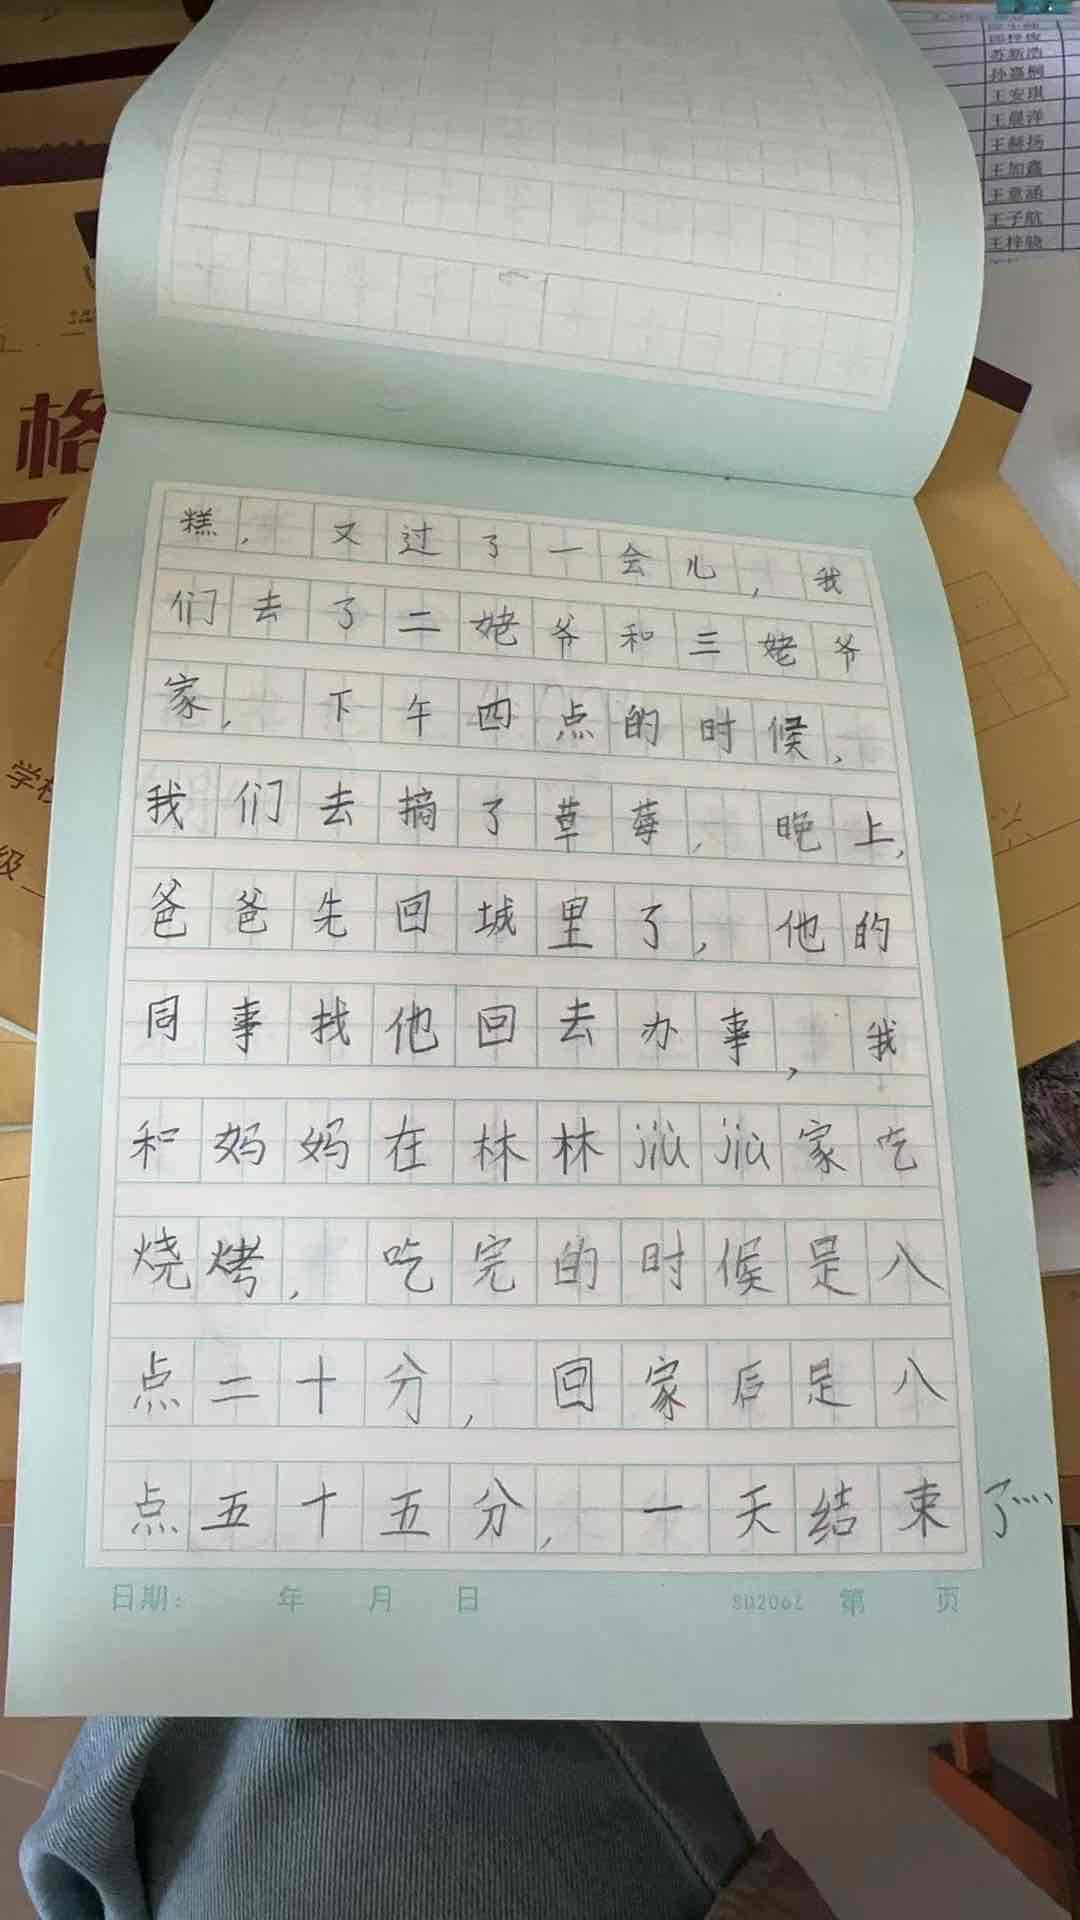 苏新浩
孙嘉桐
王安琪
王晨洋
王赫扬
王加鑫
王意涵
王子航
王梓骁
格
学校
级
糕，又过了一会儿，我
们去了二姥爷和三姥爷
家，下午四点的时候，
我们去摘了草莓，晚上，
爸爸先回城里了，他的
同事找他回去办事，我
和妈妈在林林jiùjiù家吃
烧烤，吃完的时候是八
点二十分，回家后是八
点五十五分，一天结束了…
日期： 年 月 日 SU2062 第 页